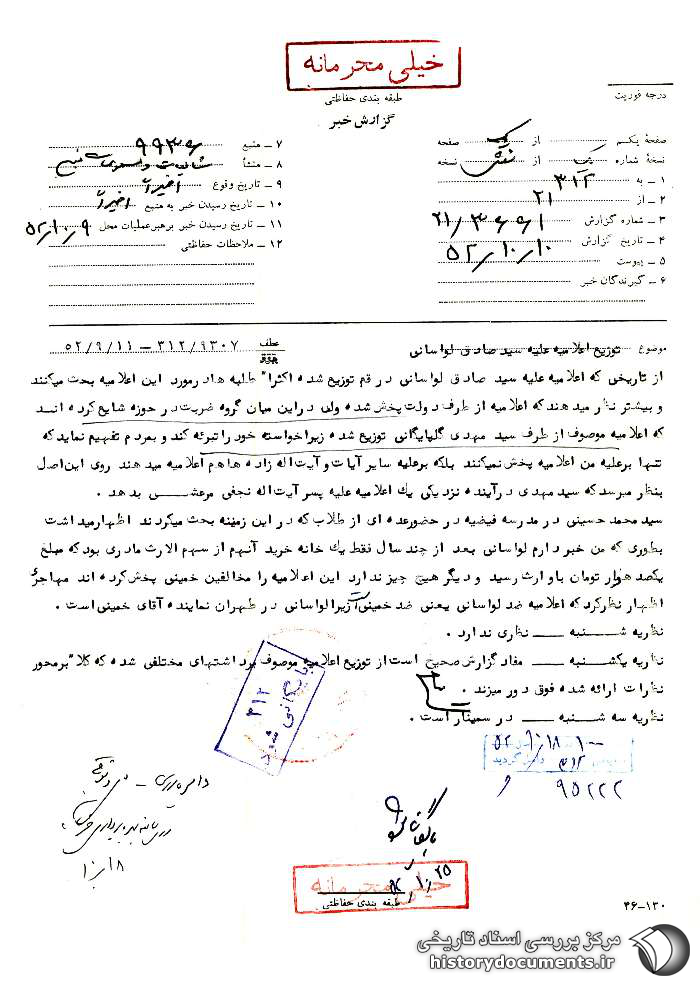 خیلی محرمانه
طبقه بندی حفاظتی
گزارش خبر
درجه فوریت
صفحهٔ یکم یک از صفحه
نسخهٔ شماره یک از نسخه
۱ - به ۳۱۲
۲ - از ۲۱
۳ - شماره گزارش
۴ - تاریخ گزارش ۵۲/۱۰/۱۰
۵ - پیوست
۶ - گیرندگان خبر
۷ - منبع
۸ - منشأ
۹ - تاریخ وقوع اخیراً
۱۰ - تاریخ رسیدن خبر به منبع اخیراً
۱۱ - تاریخ رسیدن خبر برهبر عملیات محل ۵۲/۱۰/۹
۱۲ - ملاحظات حفاظتی
موضوع توزیع اعلامیه علیه سید صادق لواسانی عطف ۳۱۲/۹۳۰۷ - ۵۲/۹/۱۱
از تاریخی که اعلامیه علیه سید صادق لواسانی در قم توزیع شده اکثرا" طلبه ها در مورد این اعلامیه بحث میکنند
و بیشتر نظر میدهند که اعلامیه از طرف دولت پخش شده ولی در این میان گروه ضربت در حوزه شایع کرده اند
که اعلامیه موصوف از طرف سید مهدی گلپایگانی توزیع شده زیرا خواسته خود را تبرئه کند و بمردم تفهیم نماید که
تنها برعلیه من اعلامیه پخش نمیکنند بلکه برعلیه سایر آیات و آیت اله زاده ها هم اعلامیه میدهند روی این اصل
بنظر میرسد که سید مهدی در آینده نزدیکی یک اعلامیه علیه پسر آیت اله نجفی مرعشی بدهد .
سید محمد حسینی در مدرسه فیضیه در حضور عده ای از طلاب که در این زمینه بحث میکردند اظهار میداشت
بطوری که من خبر دارم لواسانی بعد از چند سال فقط یک خانه خرید آنهم از سهم الارث مادری بود که مبلغ
یکصد هزار تومان با وارث رسید و دیگر هیچ چیز ندارد این اعلامیه را مخالفین خمینی پخش کرده اند مهاجری
اظهار نظر کرد که اعلامیه ضد لواسانی یعنی ضد خمینی است زیرا لواسانی در طهران نماینده آقای خمینی است .
نظریه شنبه — نظری ندارد .
نظریه یکشنبه — مفاد گزارش صحیح است از توزیع اعلامیه موصوف برداشتهای مختلفی شده که کلا" برمحور
نظرات ارائه شده فوق دور میزند .
نظریه سه شنبه — در سمینار است .
بایگانی شود
۳۱۲
۹۵۲۲۲
۱۸/۱۰
خیلی محرمانه
طبقه بندی حفاظتی
۴۶-۱۳۰
مرکز بررسی اسناد تاریخی
historydocuments.ir